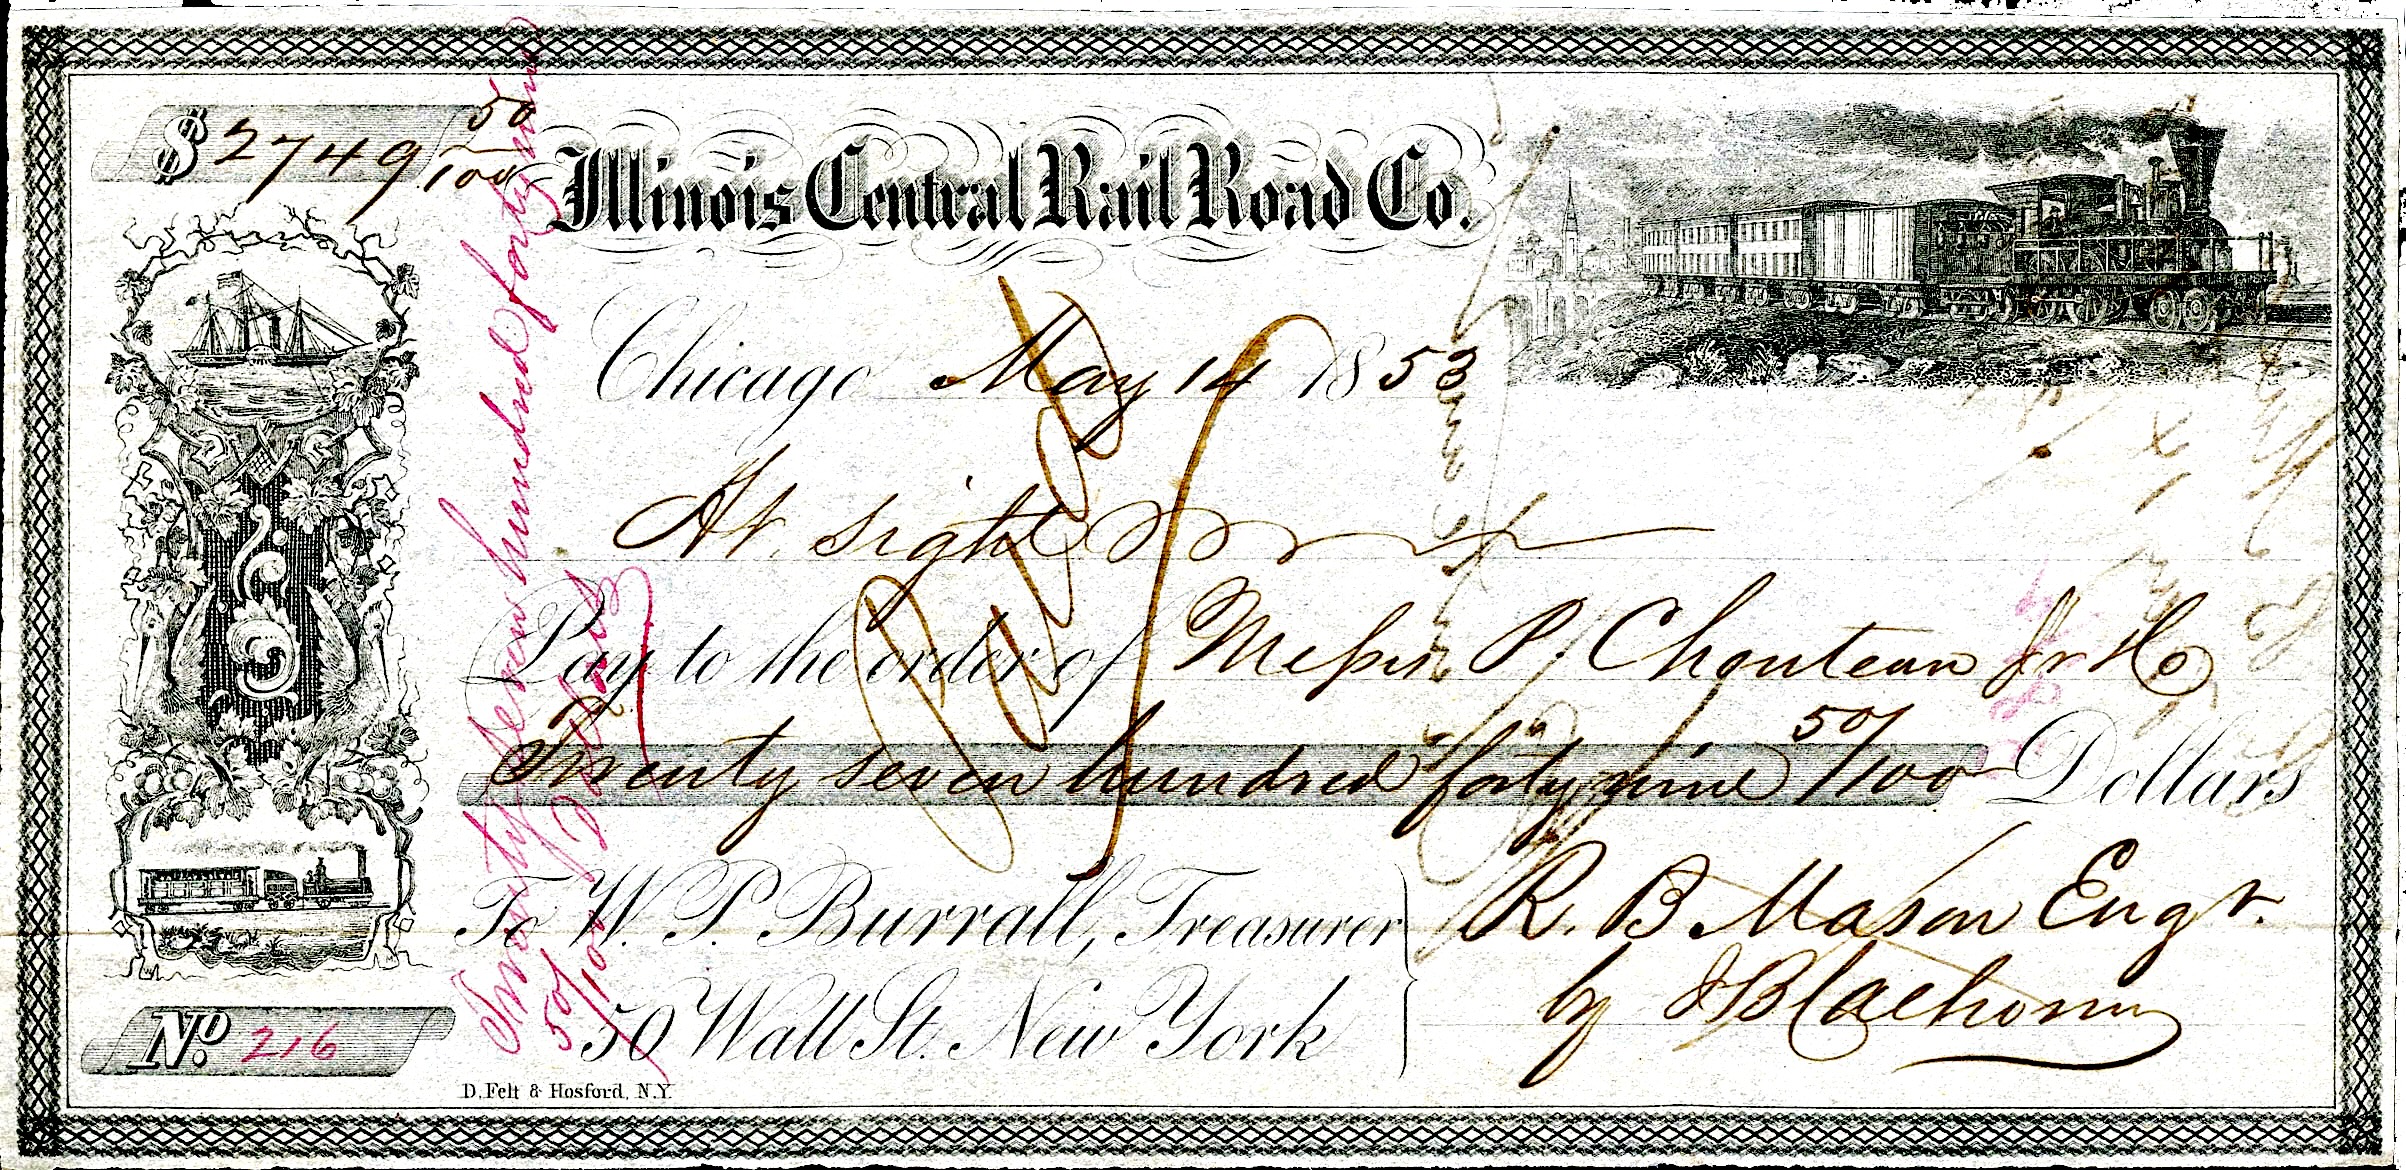 $ 2749 50/100
Illinois Central Rail Road Co.
Chicago May 14 1853
At sight
Pay to the order of Messrs P. Chouteau Jr & Co
Twenty seven hundred forty nine 50/100 Dollars
To W. P. Burrall, Treasurer
50 Wall St. New York
R. B Mason Engr.
by
No. 216
D. Felt & Hosford, N.Y.
Twenty seven hundred forty nine
50/100 Dollars
Paid